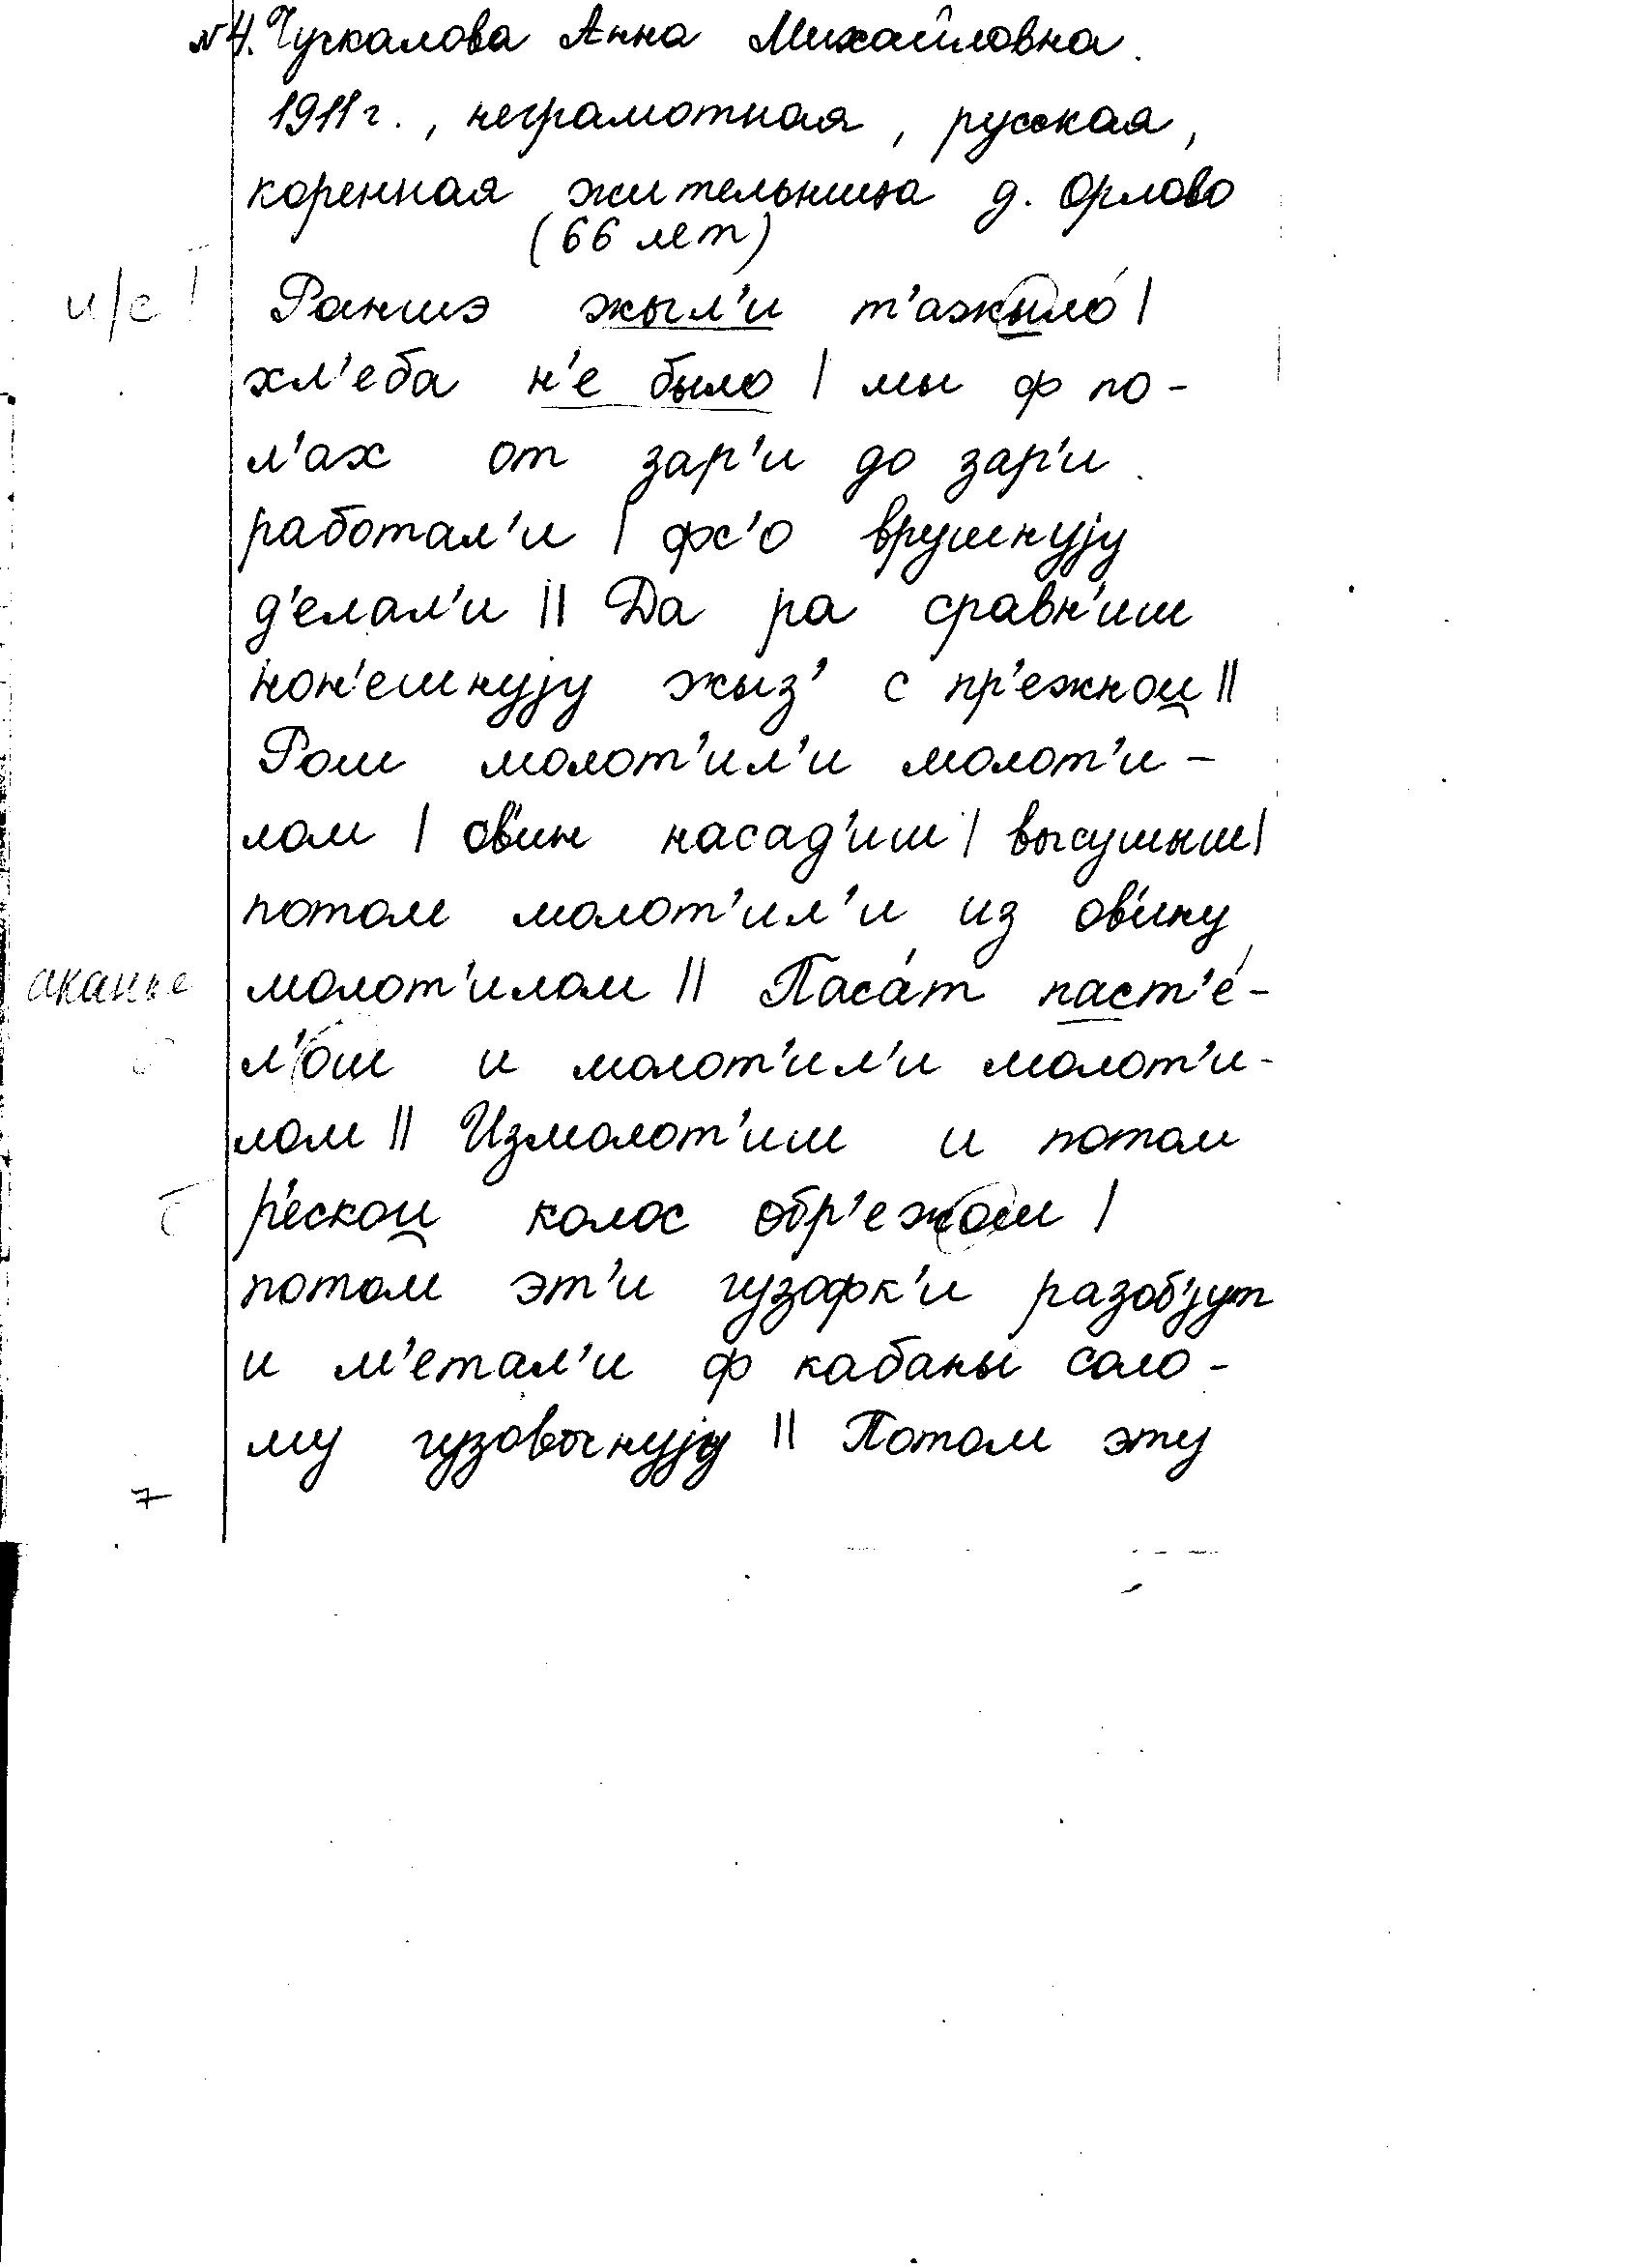 №4. Чучкалова Анна Михайловна.
1911 г., неграмотная, русская,
коренная жительница д. Орлово
(66 лет)
и/е Раншэ жыл'и т'ажыло́ |
хл'еба н'е было | мы ф по-
л'ах от зар'и до зар'и
работал'и | фс'о врушнуjу
д'елал'и || Да ра сравн'иш
нон'ешнуjу жыз' с пр'ежнои̯ ||
Рош молот'ил'и молот'и-
лом | ов'ин насад'иш | высушыш |
потом молот'ил'и из ов'ину
аканье молот'илом || Паса́т паст'е́-
л'ош и молот'ил'и молот'и-
лом || Измолот'иш и потом
р'ескои̯ колос обр'ежош |
потом эт'и гузофк'и разоб'jут
и м'етал'и ф кабаны соло-
му гузовочнуjу || Потом эту
7